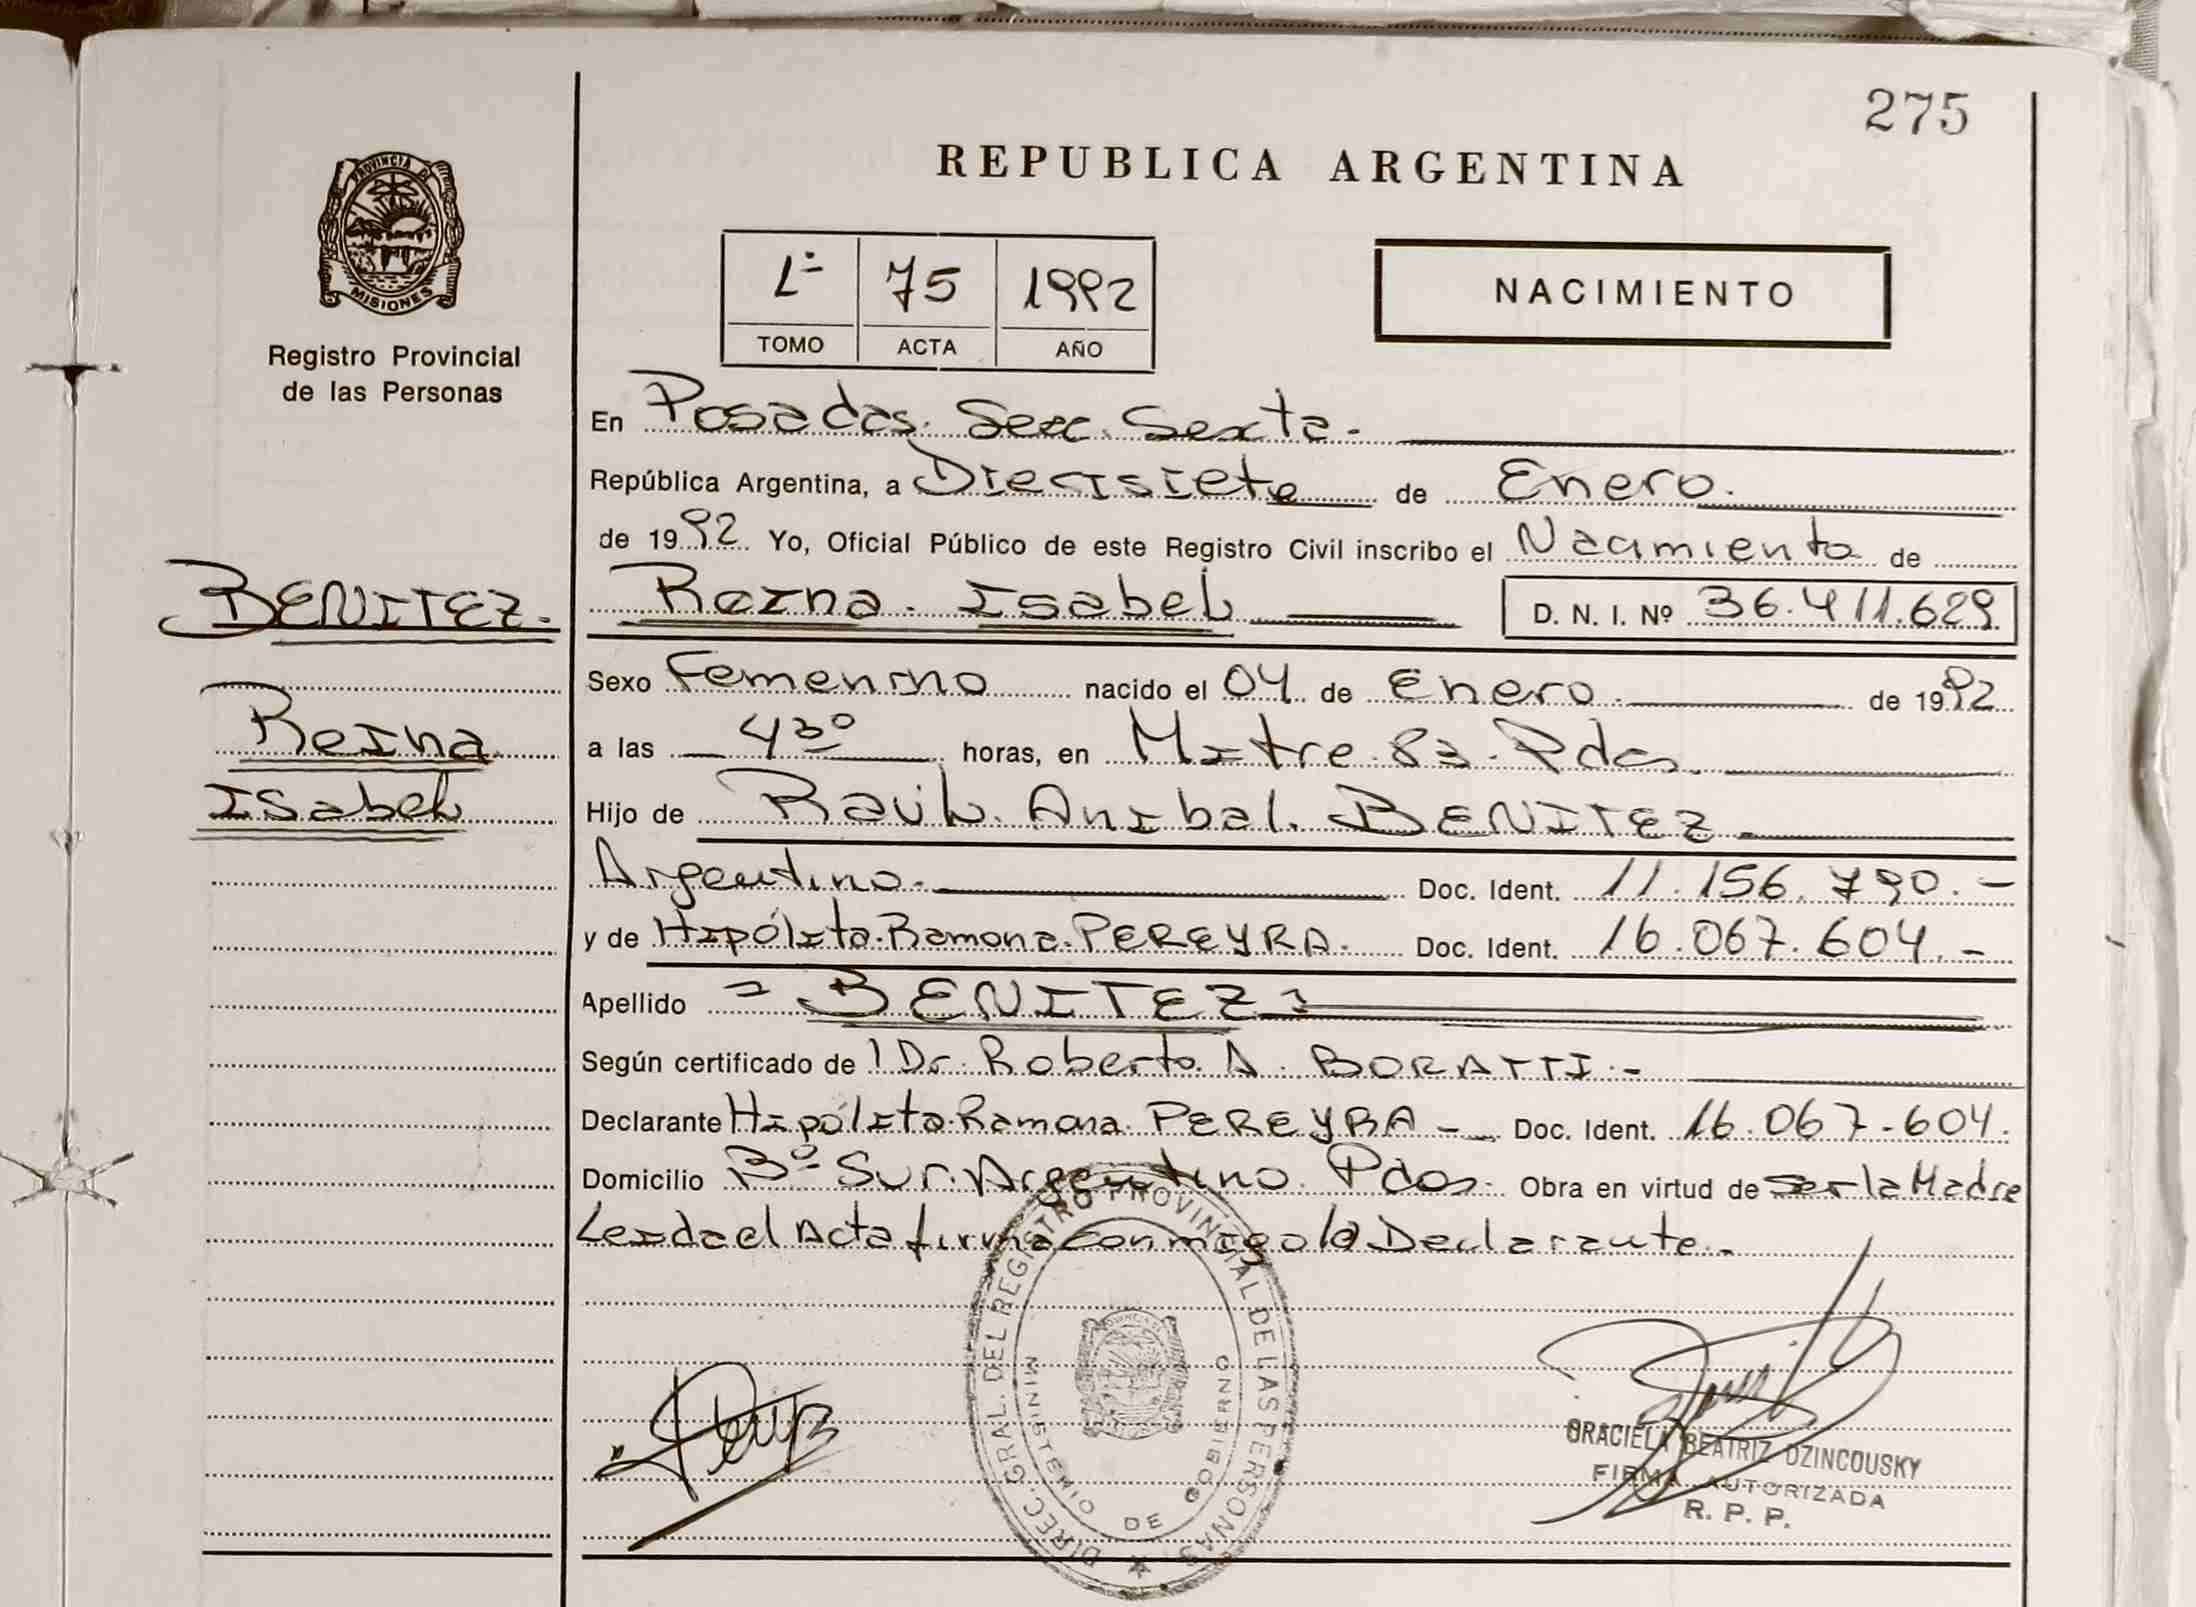 275
REPUBLICA ARGENTINA
PROVINCIA DE
MISIONES
Registro Provincial
de las Personas
Lº 75 1992
TOMO ACTA AÑO
NACIMIENTO
En Posadas. Secc. Sexta.
República Argentina, a Diecisiete de Enero.
de 1992 Yo, Oficial Público de este Registro Civil inscribo el Nacimiento de
BENITEZ.
Reina
Isabel
Reina. Isabel D. N. I. Nº 36.411.629
Sexo Femenino nacido el 04 de Enero. de 1992
a las 4 30 horas, en Mitre. 83. Pdas.
Hijo de Raúl. Anibal. BENITEZ.
Argentino. Doc. Ident. 11.156.790.-
y de Hipólita. Ramona. PEREYRA. Doc. Ident. 16.067.604.-
Apellido = BENITEZ =
Según certificado de l Dr. Roberto. A. BORATTI.-
Declarante Hipólita. Ramona. PEREYRA - Doc. Ident. 16.067.604.
Domicilio Bº Sur. Argentino. Pdas. Obra en virtud de ser la Madre
Leida el Acta firma conmigo la Declarante.-
DIREC. GRAL. DEL REGISTRO PROVINCIAL DE LAS PERSONAS
MINISTERIO DE GOBIERNO
GRACIELA BEATRIZ DZINCOUSKY
FIRMA AUTORIZADA
R. P. P.